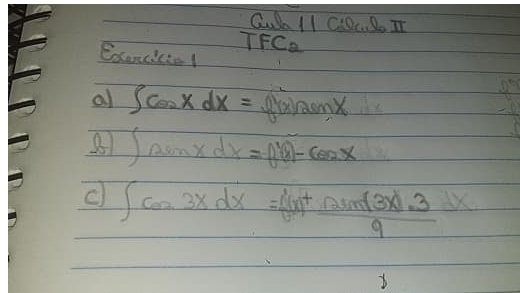 Aula 11 Cálculo II
TFC2
Exercício 1
a) ∫ cos x dx = f(x) sen x dx
b) ∫ sen x dx = f(x) - cos x
c) ∫ cos 3x dx = f(x) + sen(3x).3 dx
9